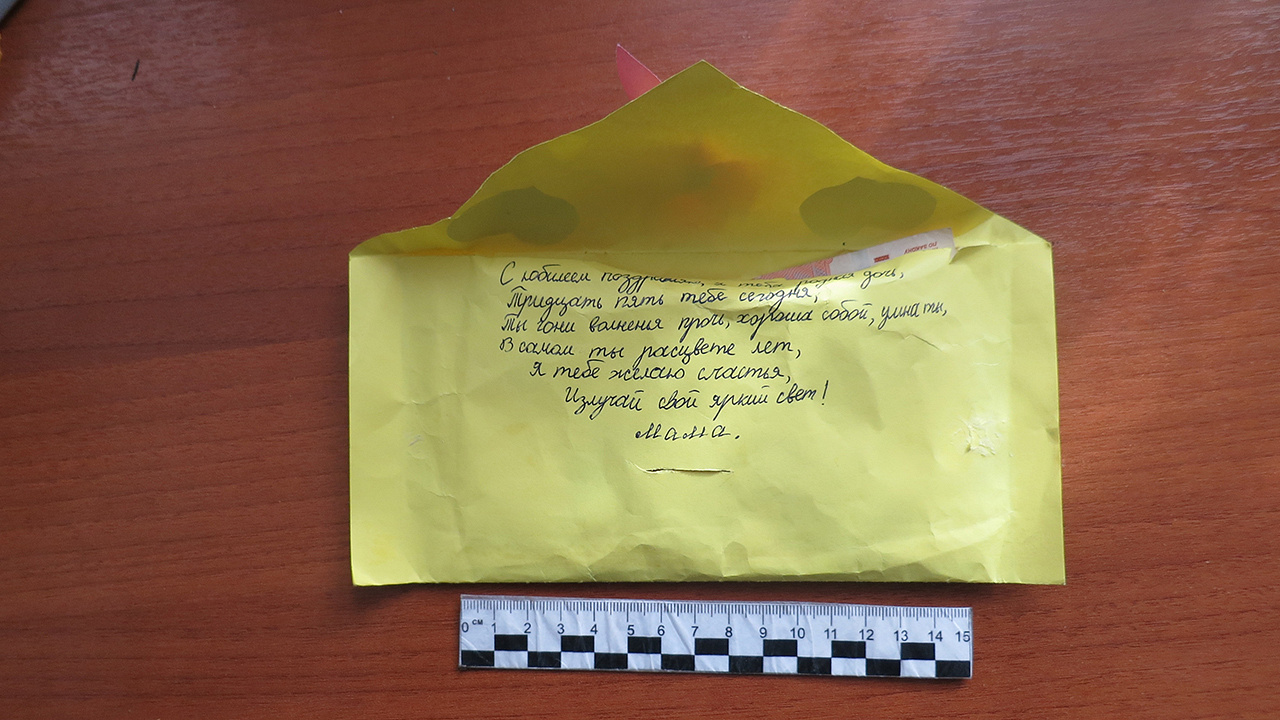 С юбилеем поздравляю, я тебя родная дочь,
Тридцать пять тебе сегодня,
Ты гони волнения прочь, хороша собой, умна ты,
В самом ты расцвете лет,
Я тебе желаю счастья,
Излучай свой яркий свет!
Мама.
ПО БАКОНУ
0 см 1 2 3 4 5 6 7 8 9 10 11 12 13 14 15